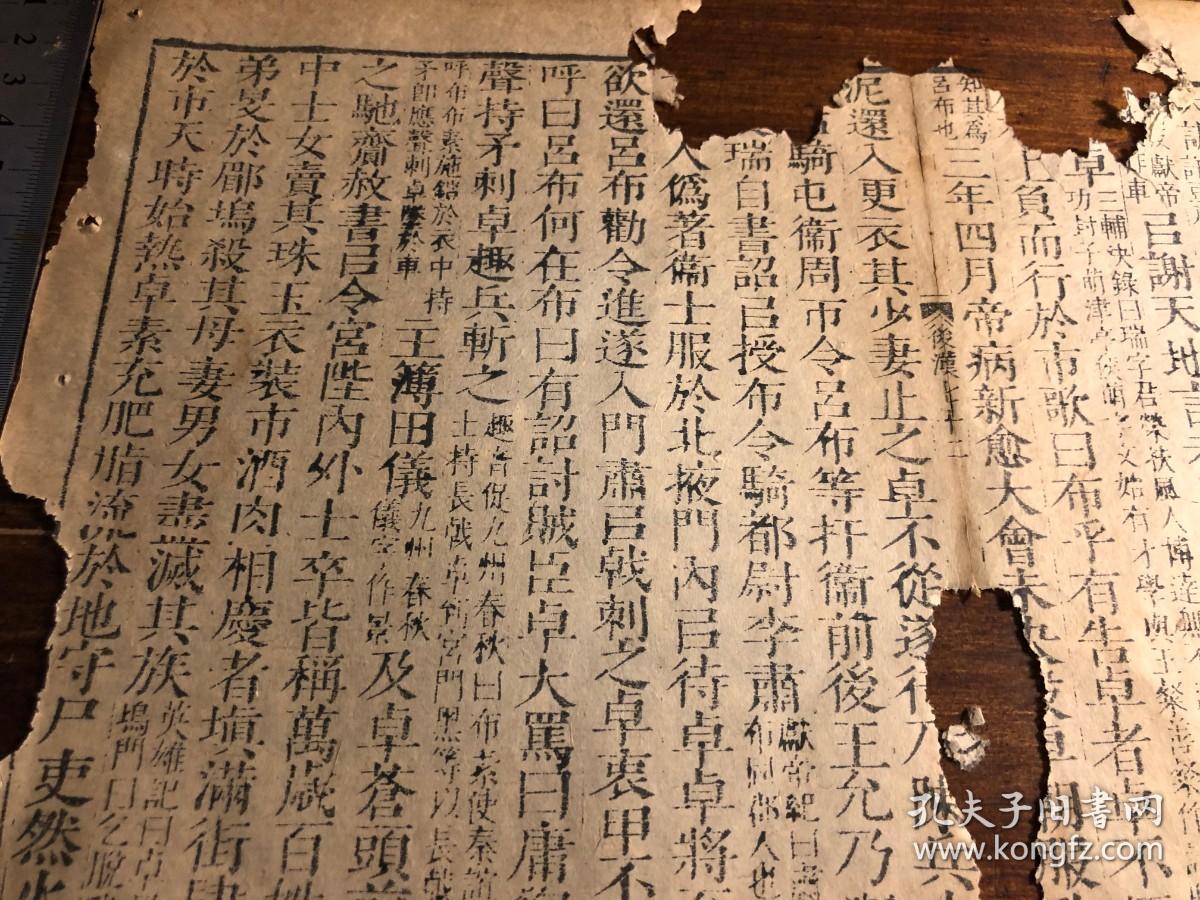 獻帝㠯謝天地
三輔決錄曰瑞字君榮扶風人博達
功封子萌津亭侯萌字文始有才學
卓
負而行於市歌曰布乎有告卓者卓不
知其爲
呂布也
三年四月帝病新愈大會未央
後漢
泥還入更衣其少妻止之卓不從遂行乃
騎屯衞周帀令呂布等扞衞前後王允乃
瑞自書詔㠯授布令騎都尉李肅
獻帝紀曰
布同郡人也
人僞著衞士服於北掖門內㠯待卓卓將
欲還呂布勸令進遂入門肅㠯戟刺之卓衷甲不
呼曰呂布何在布曰有詔討賊臣卓大罵曰庸
聲持矛刺卓趣兵斬之
趣音促九州春秋曰布素使秦
士持長戟
呼布布素施鎧於衣中持
矛即應聲刺卓墜於車
主簿田儀
九州春秋
儀字作景
及卓蒼頭
之馳齎赦書㠯令宮陛內外士卒皆稱萬歲百
中士女賣其珠玉衣裝市酒肉相慶者塡滿街
弟旻於郿塢殺其母妻男女盡滅其族
英雄記曰
塢門曰乞脫
於市天時始熱卓素充肥脂流於地守尸吏然
孔夫子旧書网
www.kongfz.com